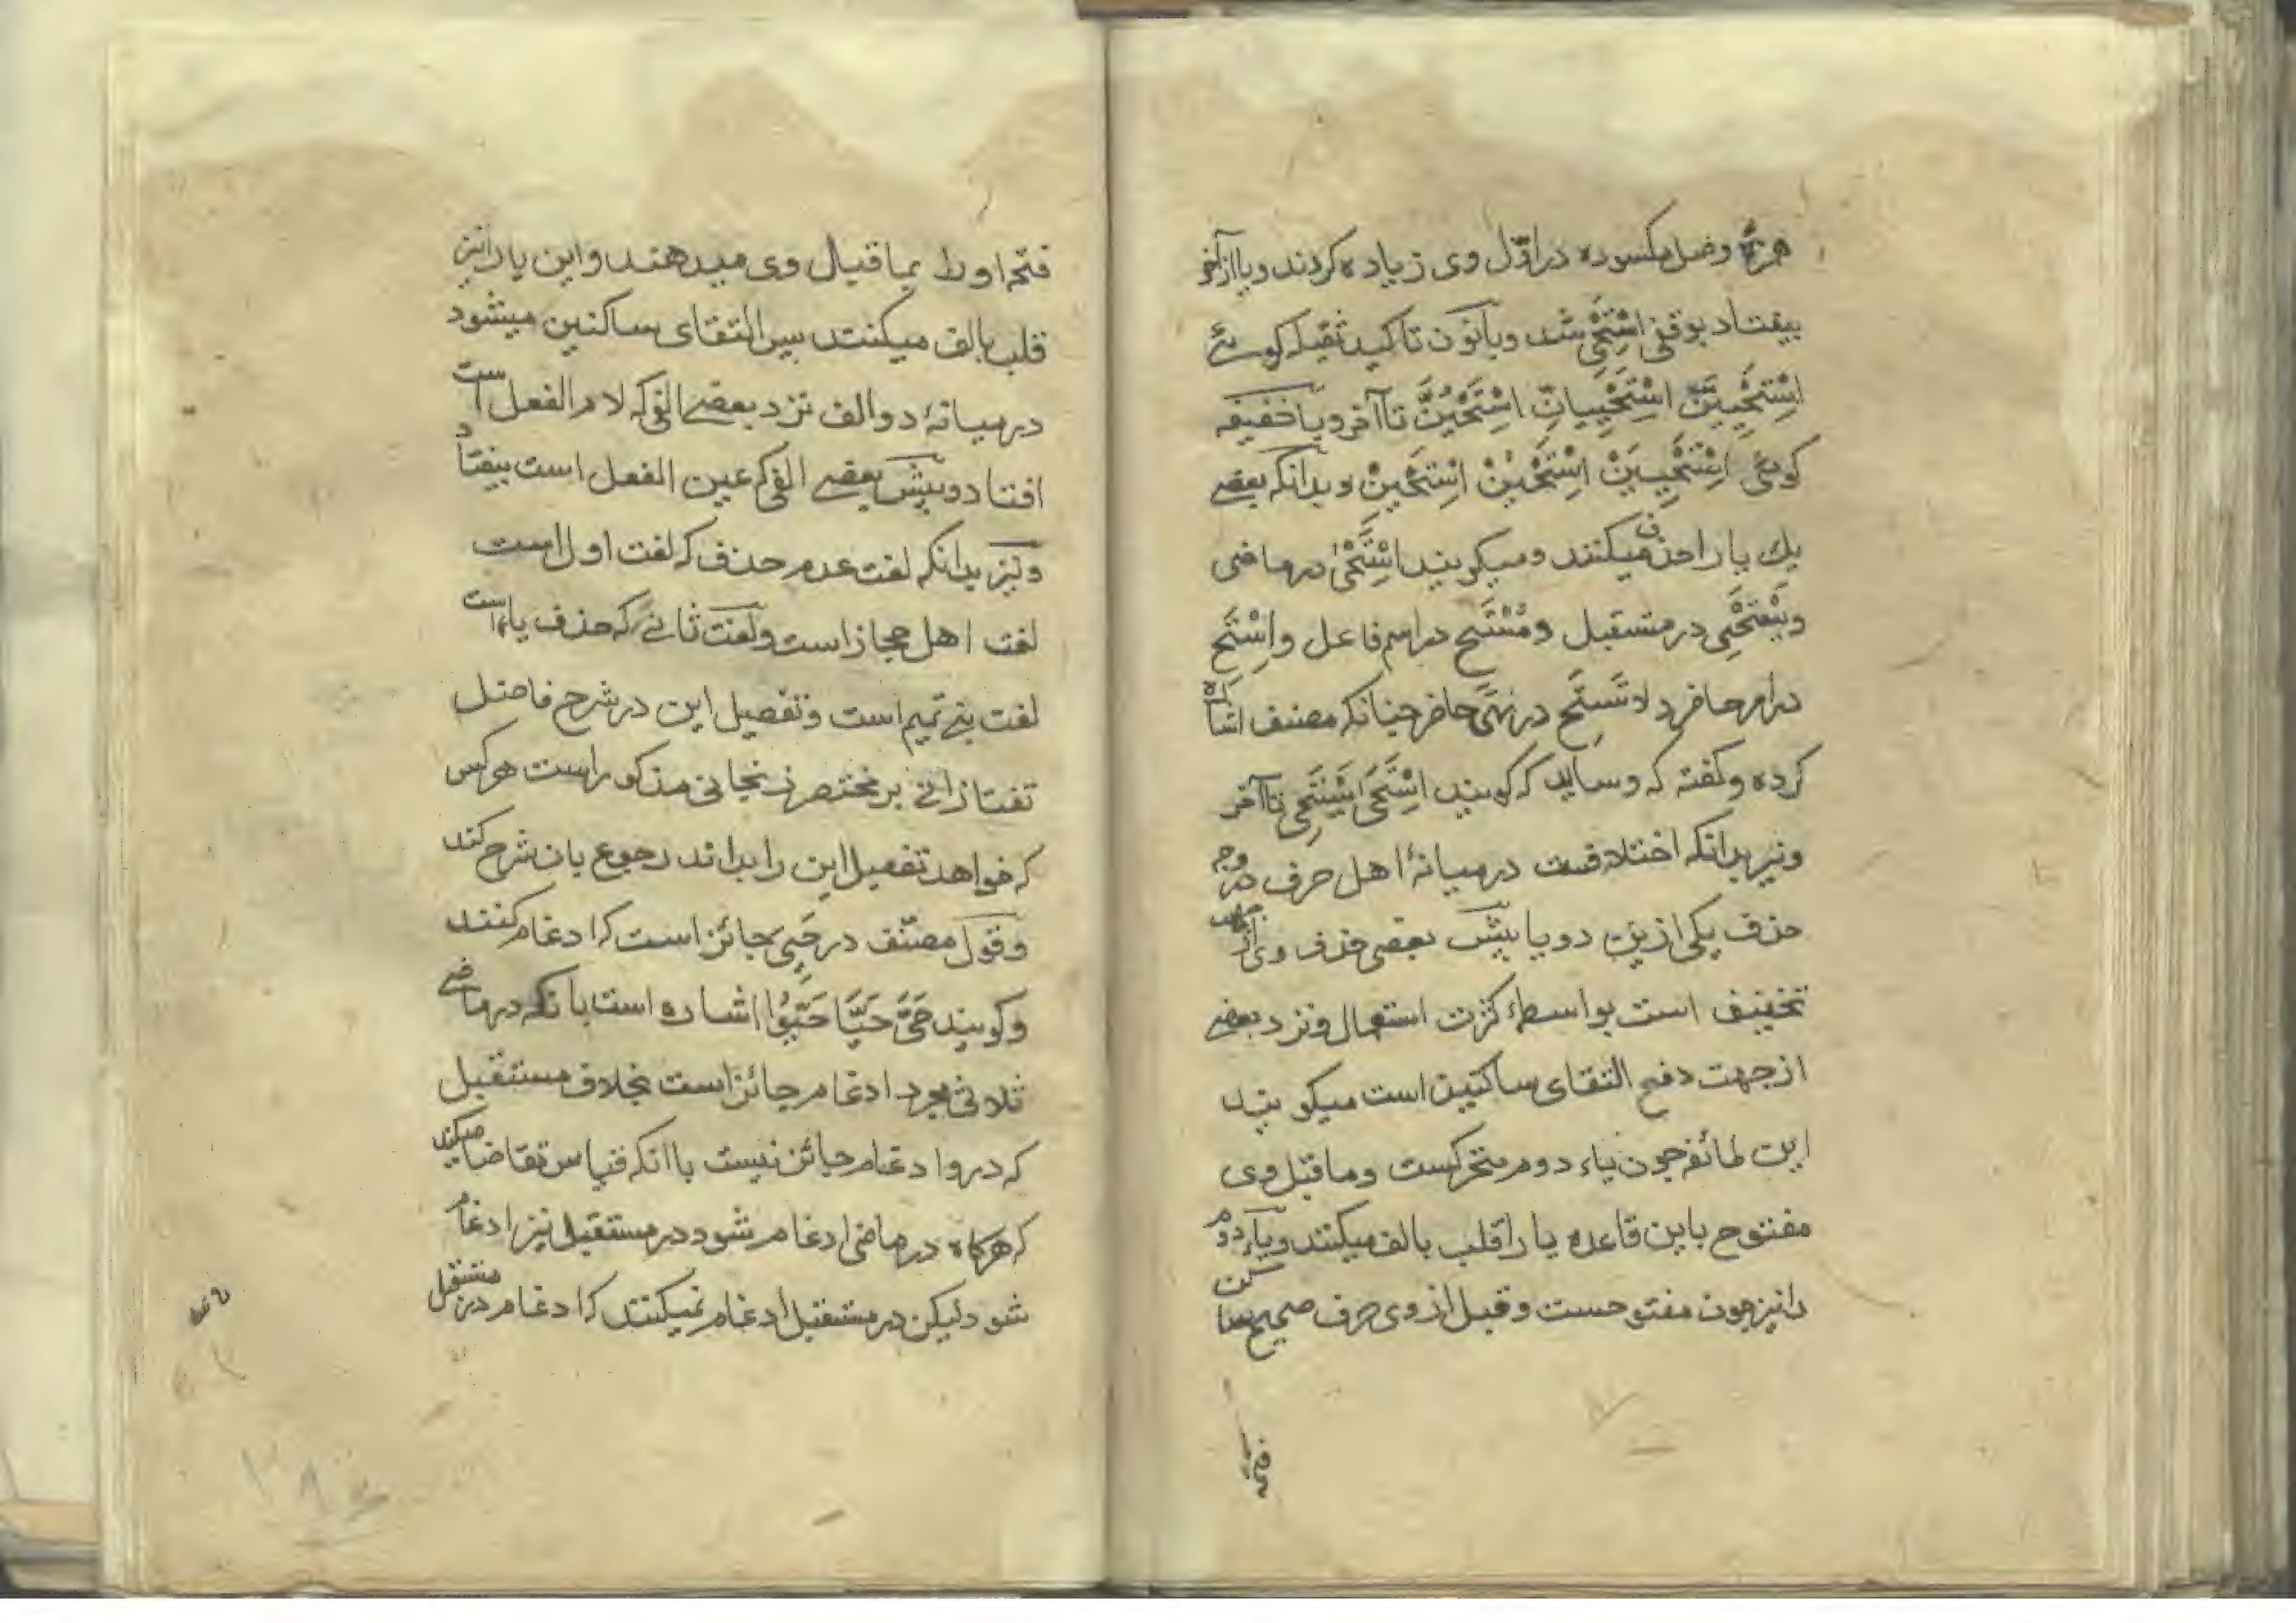 همزهٔ وصل مکسوره در اوّل وی زیاده کردند و یا از آخر
بیفتاد بوقفی اِسْتَحْیِ شد و با نون تاکید ثقیله کوئے
اِسْتَحْیِیَنَّ اِسْتَحْیِیَانِّ اِسْتَحْیُنَّ تا آخر و با خفیفه
کوئی اِسْتَحْیِیَنْ اِسْتَحْیُنْ اِسْتَحْیِنْ و بدانکه بعضے
یك یا را حذف میکنند و میکویند اِسْتَحْیٰ در ماضی
و یَسْتَحْیِ در مستقبل و مُسْتَحٍ در اسم فاعل و اِسْتَحِ
در امر حاضر و لا تَسْتَحِ در نهی حاضر چنانکه مصنف اشاره
کرده و کفته که و شاید که کویند اِسْتَحَی یَسْتَحِی تا آخر
و نیز بدانکه اختلافست در میانهٔ اهل صرف در وجه
حذف یکی ازین دو یا پیش بعضی حذف وی از جهت
تخفیف است بواسطهٔ کثرت استعمال و نزد بعضے
از جهت دفع التقای ساکنین است میکویند
این طائفه چون یاء دوم متحرکست و ما قبل وی
مفتوح باین قاعده یا را قلب بالف میکنند و یاء دوم
را نیز چون مفتوحست و قبل از وی حرف صحیح ساکن
فتحه
فتحه او را بما قبل وی میدهند و این یا را نیز
قلب بالف میکنند پس التقای ساکنین میشود
در میانهٔ دو الف نزد بعضے الفی که لام الفعل است
افتاد و پیش بعضے الفی که عین الفعل است بیفتاد
و نیز بدانکه لغت عدم حذف که لغت اول است
لغت اهل حجاز است و لغت ثانی که حذف یا است
لغت بنی تمیم است و تفصیل این در شرح فاضل
تفتازانی بر مختصر زنجانی مذکور است هر کس
که خواهد تفصیل این را بداند رجوع بان شرح کند
و قول مصنّف در حَیِیَ جائز است که ادغام کنند
و کویند حَیَّ حَیَّا حَیُّوا اشاره است بانکه در ماضے
ثلاثی مجرد ادغام جائز است بخلاف مستقبل
که در وا دغام جائز نیست با انکه قیاس تقاضا میکند
که هرکاه در ماضی ادغام شود در مستقبل نیز ادغام
شود لیکن در مستقبل ادغام نمیکنند که ادغام در مستقبل